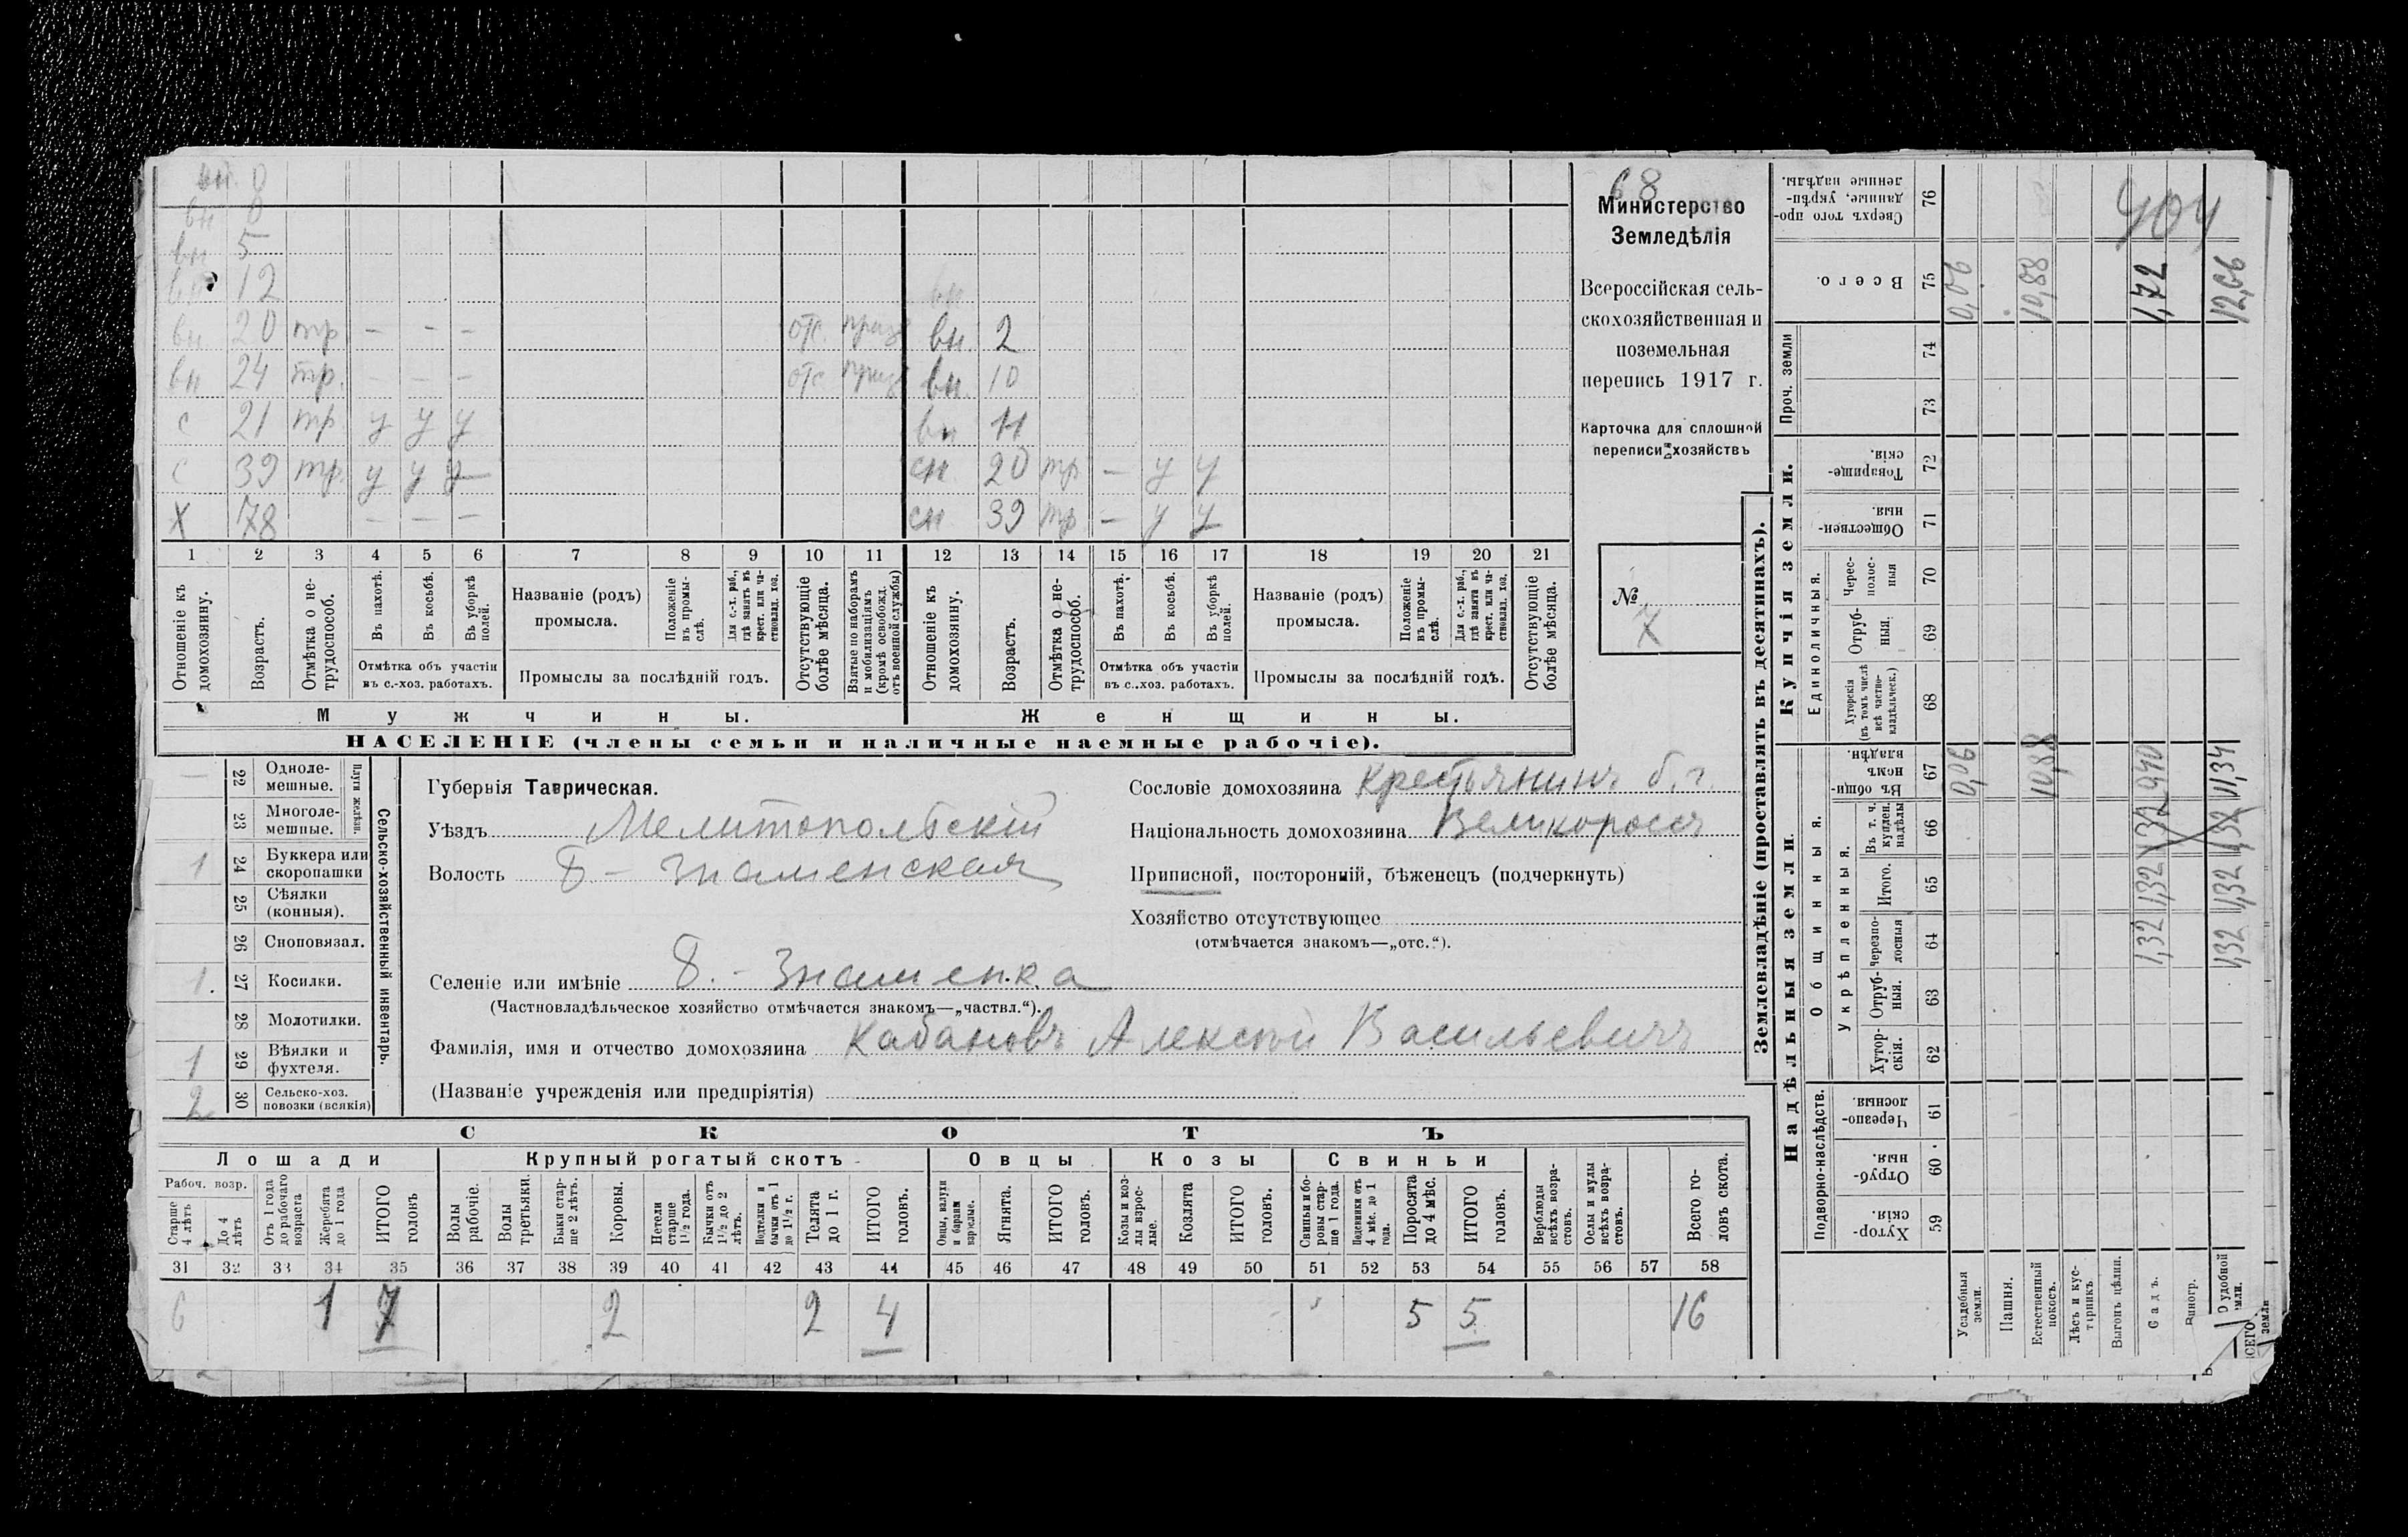 вн. 0
вн 0
вн 5
вн 12 вн
вн. 20 тр. — — — отс. призв вн. 2
вн 24 тр. — — — отс призв вн. 10
с 21 тр у у у вн 11
с 39 тр. у у у сн 20 тр — у у
Х 78 — — — сн 39 тр — у у
1 2 3 4 5 6 7 8 9 10 11 12 13 14 15 16 17 18 19 20 21
Отношеніе къ домохозяину.
Возрастъ.
Отмѣтка о не-трудоспособ.
Въ пахотѣ.
Въ косьбѣ.
Въ уборкѣ полей.
Отмѣтка объ участіи
въ с.-хоз. работахъ.
Названіе (родъ)
промысла.
Положеніе въ промы-слѣ.
Для с.-х. раб., гдѣ занятъ въ крест. или ча-стновлад. хоз.
Промыслы за послѣдній годъ.
Отсутствующіе болѣе мѣсяца.
Взятые по наборамъ и мобилизаціямъ (кромѣ освобожд. отъ военной службы)
Отношеніе къ домохозяину.
Возрастъ.
Отмѣтка о не-трудоспособ.
Въ пахотѣ.
Въ косьбѣ.
Въ уборкѣ полей.
Отмѣтка объ участіи
въ с.-хоз. работахъ.
Названіе (родъ)
промысла.
Положеніе въ промы-слѣ.
Для с.-х. раб., гдѣ занята въ крест. или ча-стновлад. хоз.
Промыслы за послѣдній годъ.
Отсутствующіе болѣе мѣсяца.
Мужчины. Женщины.
НАСЕЛЕНІЕ (члены семьи и наличные наемные рабочіе).
68
Министерство
Земледѣлія
Всероссійская сель-
скохозяйственная и
поземельная
перепись 1917 г.
Карточка для сплошной
переписи хозяйствъ
№
Х
Сельско-хозяйственный инвентарь.
Плуги желѣзн.
— 22 Одноле-мешные.
23 Многоле-мешные.
1 24 Буккера или скоропашки
25 Сѣялки (конныя).
26 Сноповязал.
1. 27 Косилки.
28 Молотилки.
1 29 Вѣялки и фухтеля.
2 30 Сельско-хоз. повозки (всякія)
Губернія Таврическая.
Уѣздъ Мелитопольскій
Волость Б - Знаменская
Селеніе или имѣніе Б. - Знаменка
(Частновладѣльческое хозяйство отмѣчается знакомъ—„частвл.“).
Фамилія, имя и отчество домохозяина Кабановъ Алексѣй Васильевичъ
(Названіе учрежденія или предпріятія)
Сословіе домохозяина Крестьянинъ б. г.
Національность домохозяина Великороссъ
Приписной, посторонній, бѣженецъ (подчеркнуть)
Хозяйство отсутствующее
(отмѣчается знакомъ—„отс.“).
СКОТЪ
Лошади Крупный рогатый скотъ Овцы Козы Свиньи
Рабоч. возр.
Старше 4 лѣтъ
До 4 лѣтъ
Отъ 1 года до рабочаго возраста
Жеребята до 1 года
ИТОГО головъ
Волы рабочіе.
Волы третьяки.
Быки стар-ше 2 лѣтъ.
Коровы.
Нетели старше 1 1/2 года.
Бычки отъ 1 1/2 до 2 лѣтъ.
Подтелки и бычки отъ 1 до 1 1/2 г.
Телята до 1 г.
ИТОГО головъ.
Овцы, валухи и бараны взрослые.
Ягнята.
ИТОГО головъ.
Козы и коз-лы взрос-лые.
Козлята
ИТОГО головъ.
Свиньи и бо-ровы стар-ше 1 года.
Подсвинки отъ 4 мѣс. до 1 года.
Поросята до 4 мѣс.
ИТОГО головъ.
Верблюды всѣхъ возра-стовъ.
Ослы и мулы всѣхъ возра-стовъ.
Всего го-ловъ скота.
31 32 33 34 35 36 37 38 39 40 41 42 43 44 45 46 47 48 49 50 51 52 53 54 55 56 57 58
6 1 7 2 2 4 5 5 16
Землевладѣніе (проставлять въ десятинахъ).
Надѣльныя земли. Купчія земли.
Подворно-наслѣдств.
Общинныя.
Укрѣпленныя.
Единоличныя.
Проч. земли
Хутор-скія. 59
Отруб-ныя. 60
Черезпо-лосныя 61
Хутор-скія. 62
Отруб-ныя. 63
Черезпо-лосныя 64
Итого. 65
Въ т. ч. куплен. надѣлы 66
Въ общин-номъ владѣн. 67
Хуторскія (въ томъ числѣ всѣ частно-владѣльческ.) 68
Отруб-ныя. 69
Черес-полос-ныя 70
Обществен-ныя 71
Товарище-скія. 72
73
74
Всего. 75
Сверхъ того про-данные, укрѣп-ленные надѣлы. 76
404
Усадебныя земли. 0,06 0,06
Пашня.
Естественный покосъ. 10,88 10,88
Лѣсъ и кус-тарникъ
Выгонъ цѣлин.
Садъ. 1,32 1,32 1,32 0,40 1,72
Виногр.
удобной земли. 1,32 1,32 1,32 11,34 12,66